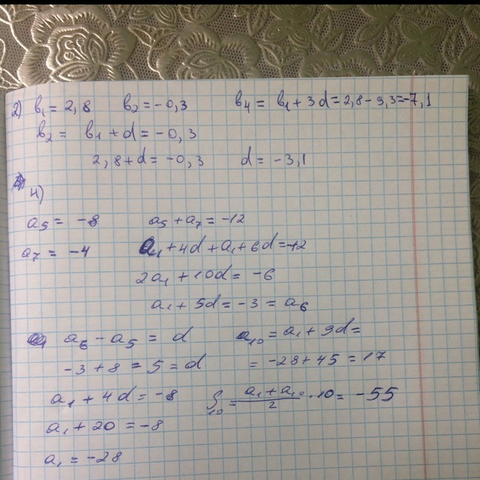 2) b₁ = 2,8 b₂ = -0,3 b₄ = b₁ + 3d = 2,8 - 9,3 = -7,1
b₂ = b₁ + d = -0,3
2,8 + d = -0,3 d = -3,1
4)
a₅ = -8 a₅ + a₇ = -12
a₇ = -4 a₁ + 4d + a₁ + 6d = -12
2a₁ + 10d = -6
a₁ + 5d = -3 = a₆
a₆ - a₅ = d a₁₀ = a₁ + 9d =
-3 + 8 = 5 = d = -28 + 45 = 17
a₁ + 4d = -8 S₁₀ = (a₁ + a₁₀)/2 · 10 = -55
a₁ + 20 = -8
a₁ = -28